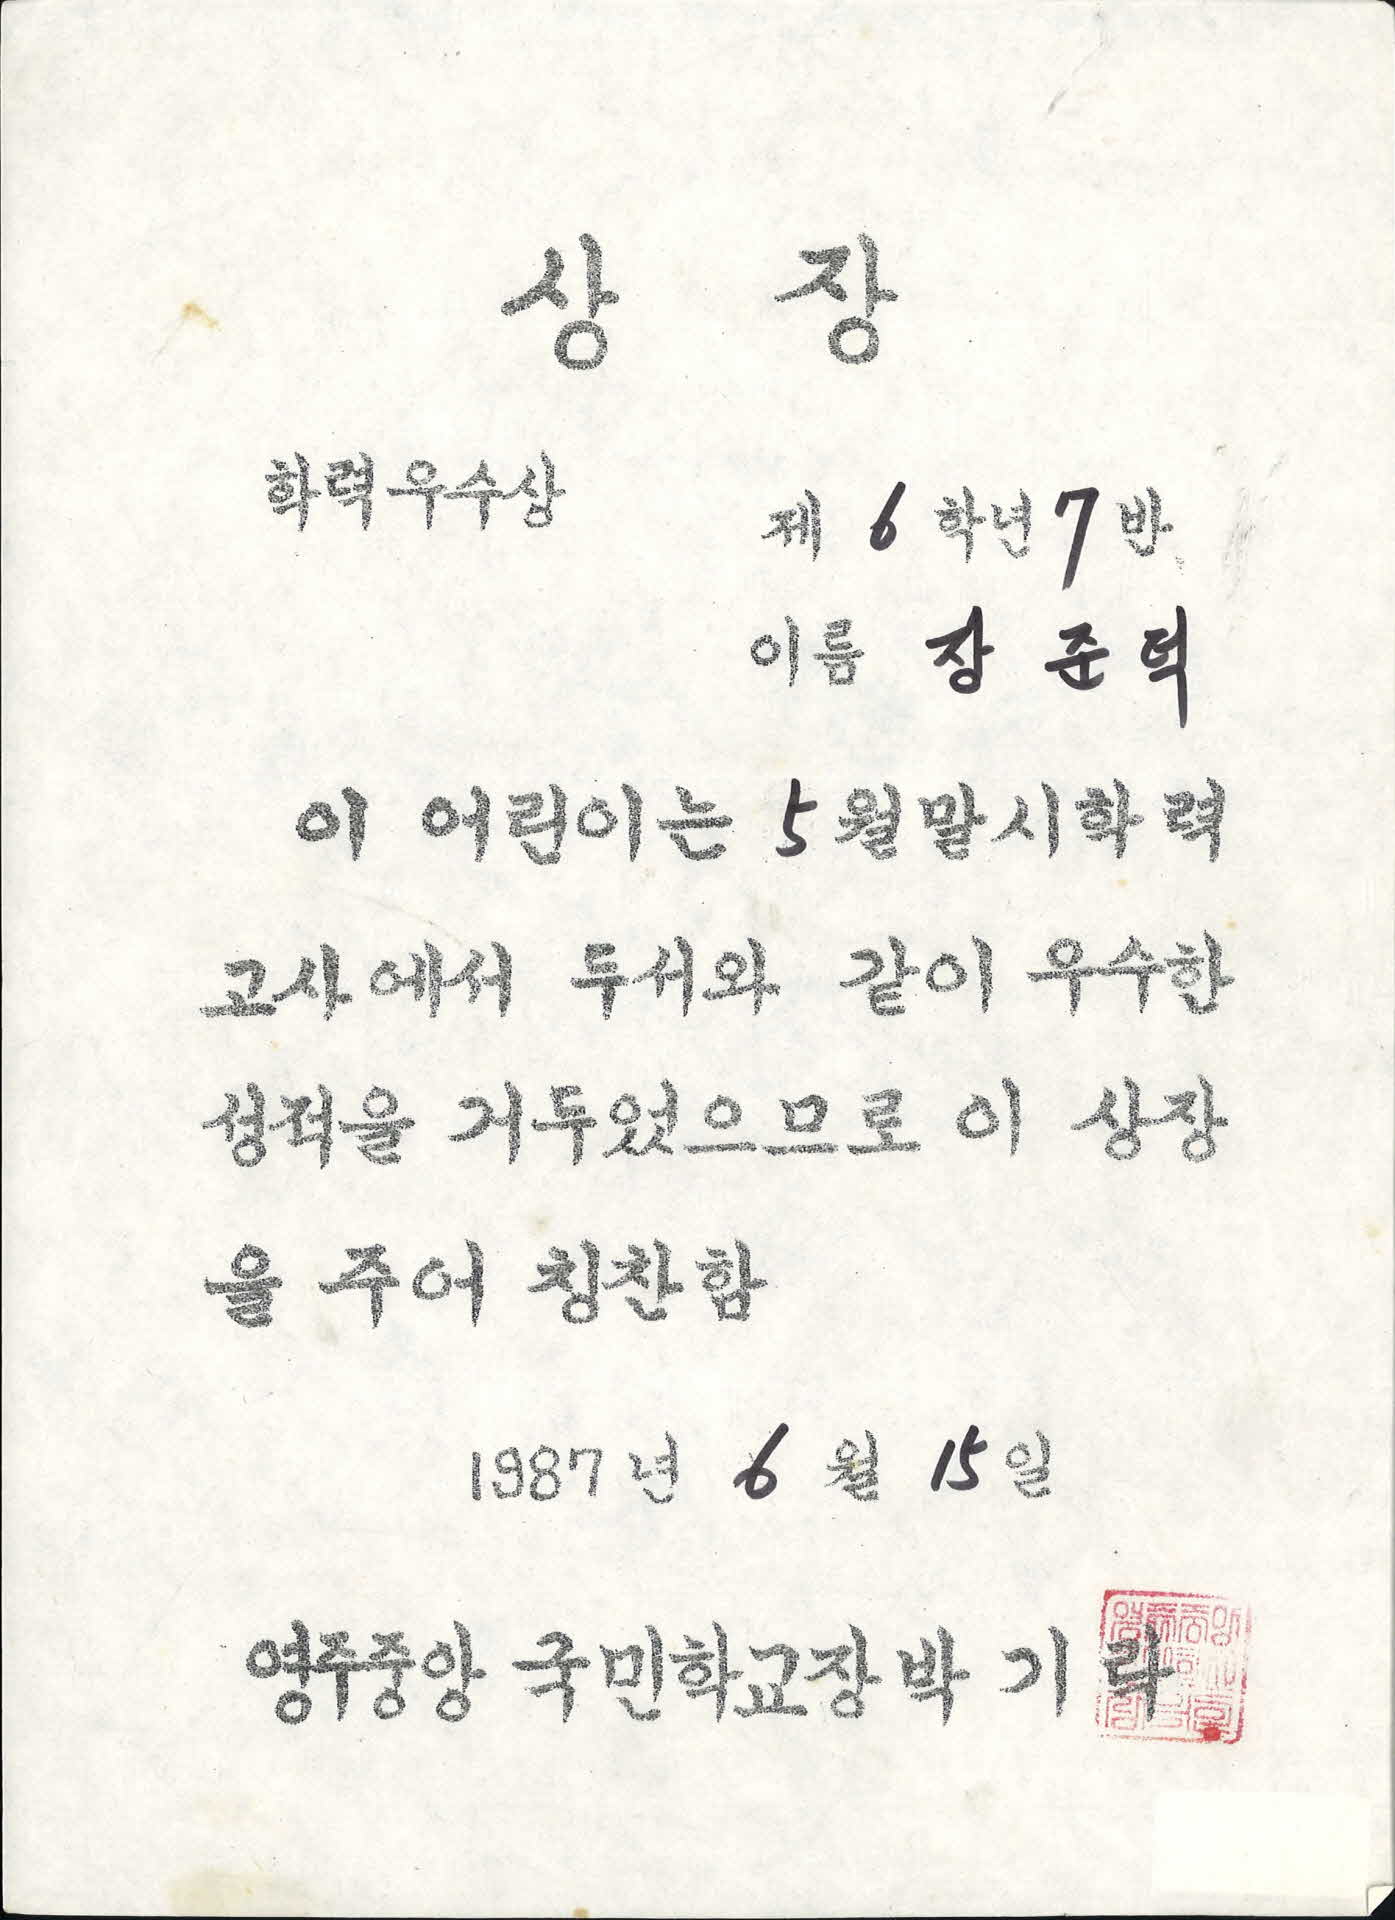 상 장
학력우수상
제 6 학년 7 반
이름 장 준 덕
이 어린이는 5월말시학력
고사에서 두서와 같이 우수한
성적을 거두었으므로 이 상장
을 주어 칭찬함
1987년 6월 15일
영주중앙 국민학교장 박 기 락